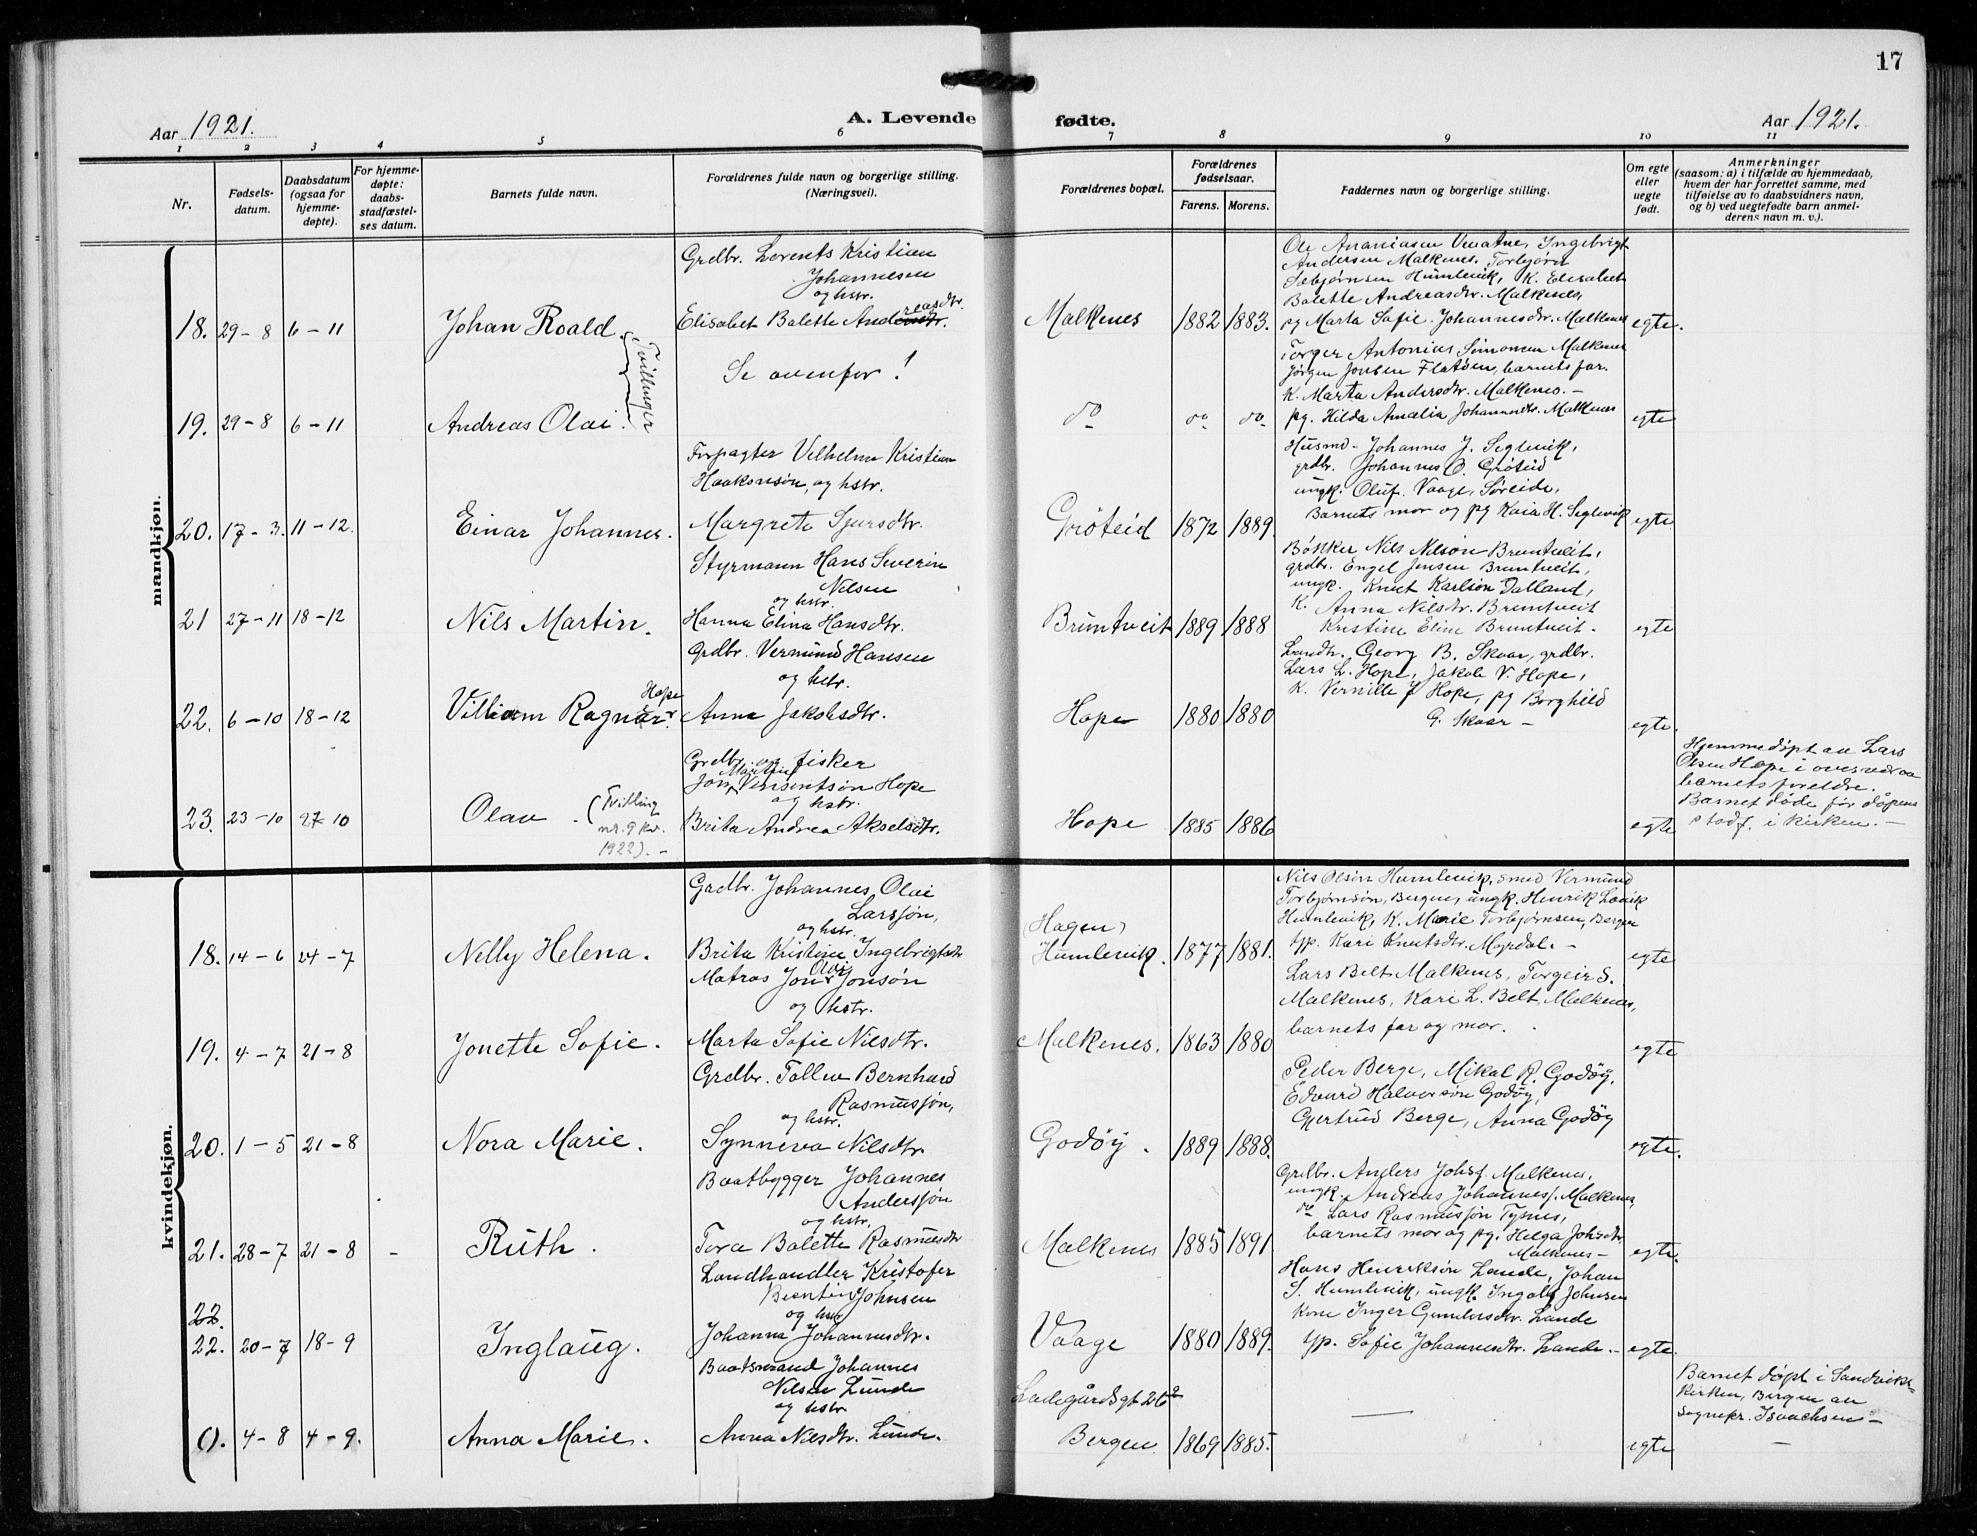 17
Aar 1921.
A. Levende
fødte.
Aar 1921.
1 2 3 4 5 6 7 8 9 10 11
Nr.
Fødsels-
datum.
Daabsdatum
(ogsaa for
hjemme-
døpte).
For hjemme-
døpte:
daabs-
stadfæstel-
ses datum.
Barnets fulde navn.
Forældrenes fulde navn og borgerlige stilling.
(Næringsvei).
Forældrenes bopæl.
Forældrenes
fødselsaar.
Farens. Morens.
Faddernes navn og borgerlige stilling.
Om egte
eller
uegte
født.
Anmerkninger
(saasom: a) i tilfælde av hjemmedaab,
hvem der har forrettet samme, med
tilføielse av to daabsvidners navn,
og b) ved uegtefødte barn anmel-
derens navn m. v.).
mandkjøn.
18. 29-8 6-11
Johan Roald.
Tvillinger
Grdbr. Lorents Kristian
Johannesen
og hstr.
Elisabet Balette Andreasdtr.
Malkenes 1882 1883.
Ole Ananiasen Ingebrigt
Andersen Malkenes, Torbjørn
Humlevik, K. Elisabet
Balette Andreasdtr. Malkenes,
pg Marta Sofie Johannesdtr. Malkenes
egte.
19. 29-8 6-11
Andreas Olai.
Se ovenfor!
do do do
Torger Antonius Simonsen Malkenes
Jørgen Jonsen Flatøen, barnets far.
K. Marta Andersdtr. Malkenes. -
pg. Hilda Amalia Johannesdtr. Malkenes
egte
20. 17-3. 11-12.
Einar Johannes.
Forpagter Vilhelm Kristian
Haakonsøn, og hstr.
Margrete Sjursdtr.
Grøteid 1872 1889.
Husmd. Johannes J. Seglevik,
grdbr. Johannes O. Grøteid
ungk. Oluf Vaage, Søreide,
Barnets mor og pg Kaia H. Seglevik
egte
21 27-11 18-12
Nils Martin.
Styrmann Hans Severin
Nilsen
og hstr.
Hanna Elina Hansdtr.
Bruntveit 1889 1888
Bøkker Nils Nilsøn Bruntveit,
grdbr. Engel Jensen Bruntveit,
ungk. Knut Karlson Dalland,
K. Anna Nilsdtr. Bruntveit
Kristine Eline Bruntveit.
egte
22. 6-10 18-12
Villiam Ragnar. Hope
Grdbr. Vermund Hansen
og hstr.
Anna Jakobsdtr.
Hope 1880 1880
Landh. Georg B. Skaar, grdbr.
Lars L. Hope, Jakob V. Hope,
K. Vernille J Hope, pg Borghild
G. Skaar -
egte.
23. 23-10 27-10
Olav. (Tvilling
nr. 9 kv.
1922). -
Grdbr. og fisker
Jon Martin Vinsentsøn Hope
og hstr.
Brita Andrea Akselsdtr.
Hope 1885 1886
egte
Hjemmedøpt av Lars
Olsen Hope i overvær av
barnets foreldre.
Barnet døde før dåpens
stadf. i kirken. -
kvindekjøn.
18. 14-6 24-7
Nelly Helena.
Grdbr. Johannes Olai
Larssøn,
og hstr.
Brita Kristine Ingebrigtsdtr
(Hagen)
Humlevik. 1877 1881.
Nils Olsen Humlevik, smed Vermund
Torbjørnsøn, Bergen, ungk. Henrik Larvik
Humlevik, K. Marie Torbjørnsen, Bergen
tjp. Kari Knutsdtr. Myrdal. -
egte
19. 4-7 21-8
Jonette Sofie.
Matros Jon Olai Jonsøn
og hstr.
Marta Sofie Nilsdtr.
Malkenes. 1863 1880
Lars Belt Malkenes, Torgeir S.
Malkenes, Kari L. Belt, Malkenes,
barnets far og mor.
egte
20. 1-5 21-8
Nora Marie.
Grdbr. Tollev Bernhard
Rasmussøn,
og hstr.
Synneva Nilsdtr.
Godøy. 1889 1888.
Peder Berge, Mikal R. Godøy,
Edvard Halvorsøn Godøy,
Gjertrud Berge, Anna Godøy
egte.
21. 28-7 21-8 -
Ruth.
Baatbygger Johannes
Anderssøn
og hstr.
Tora Balette Rasmusdtr
Malkenes 1885 1891
Grdbr. Anders Johsf. Malkenes,
ungk. Andreas Johannesf. Malkenes,
do Lars Rasmussøn Tysnes,
barnets mor og pg. Helga Johsdtr.
Malkenes -
egte.
22.
22. 20-7 18-9
Inglaug.
Landhandler Kristofer
Johnsen
og hstr
Johanna Johannesdtr.
Vaage 1880 1889.
Hans Henriksøn Lande, Johan
S. Humlevik, ungk. Ingolf Johnsen
Kone Inger Gundersdtr. Lande
tjp. Sofie Johannesdtr. Lande. -
egte.
(). 4-8 4-9.
Anna Marie.
Baatsmand Johannes
Nilsen Lunde
og hstr
Anna Nilsdtr. Lunde.
Ladegårdsgt 26
Bergen. 1869 1885.
egte
Barnet døpt i Sandviks-
kirken, Bergen av
Sognepr. Isaachsen -